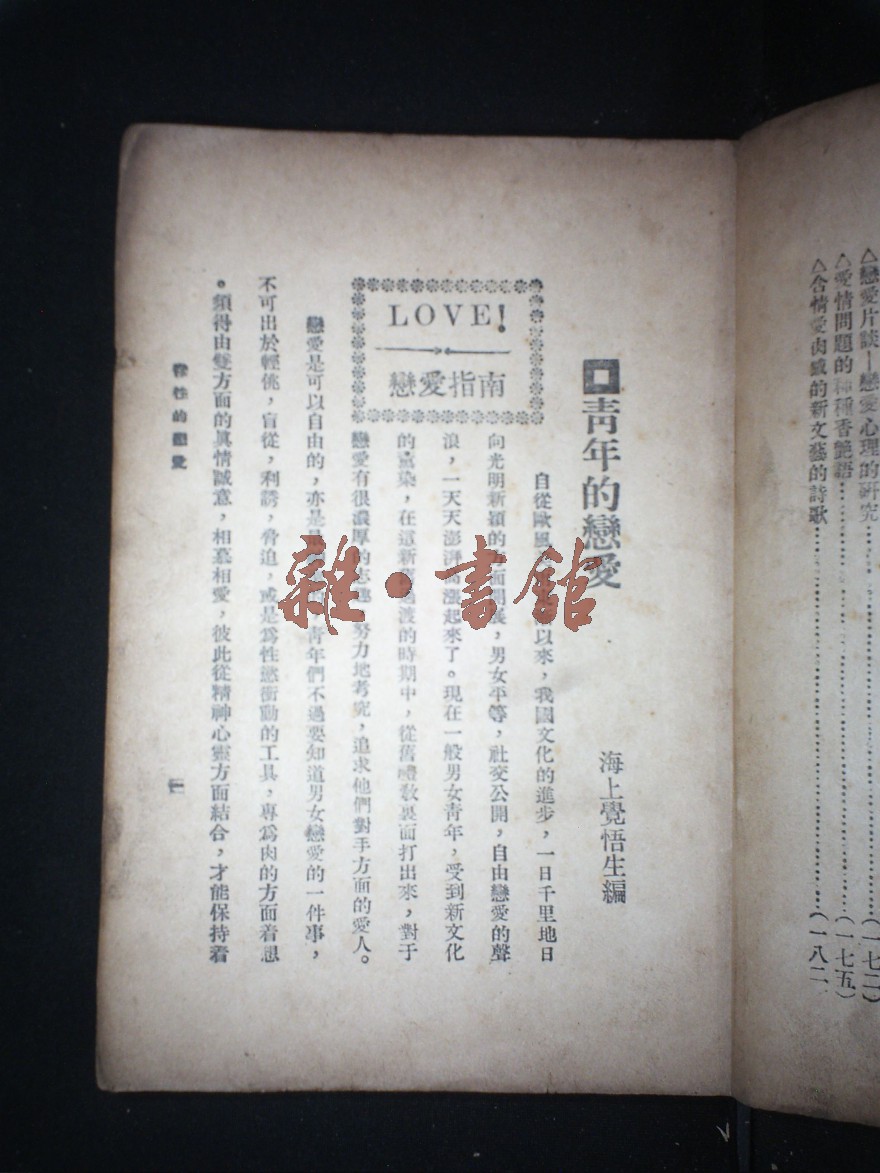 △戀愛片談—戀愛心理的研究……(一七二)
△愛情問題的種種香艷語……(一七五)
△含情愛肉感的新文藝的詩歌……(一八二
青年的戀愛
海上覺悟生編
LOVE!
戀愛指南
自從歐風 以來，我國文化的進步，一日千里地日
向光明新穎的 面 展，男女平等，社交公開，自由戀愛的聲
浪，一天天澎湃 漲起來了。現在一般男女青年，受到新文化
的薰染，在這新 渡的時期中，從舊禮敎裏面打出來，對于
戀愛有很濃厚的志 努力地考究，追求他們對手方面的愛人。
戀愛是可以自由的，亦是 靑年們不過要知道男女戀愛的一件事，
不可出於輕佻，盲從，利誘，脅追，或是爲性慾衝動的工具，專爲肉的方面着想
。須得由雙方面的眞情誠意，相慕相愛，彼此從精神心靈方面結合，才能保持着
性的戀愛
一
雜·書館